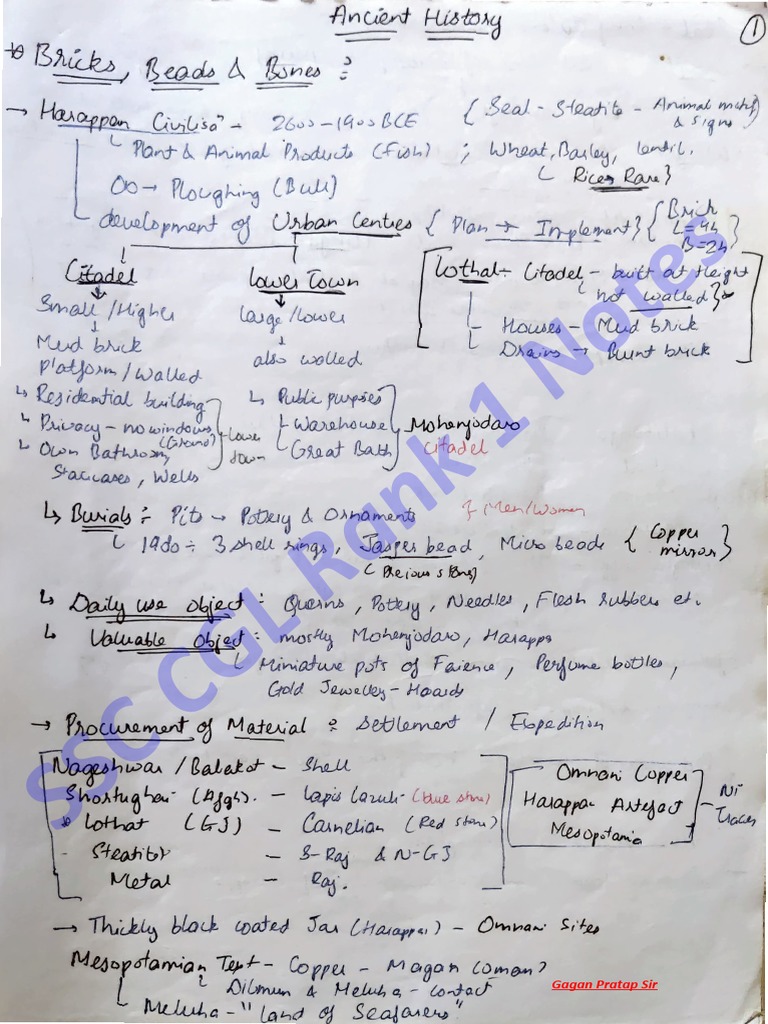 Ancient History
1
Bricks, Beads & Bones :
→ Harappan Civilisaⁿ - 2600-1900 BCE { Seal - Steatite - Animal motif & Signs }
↳ Plant & Animal Products (Fish) ; Wheat, Barley, lentil.
↳ Rice Rare }
→ Ploughing (Bull)
development of Urban Centres { Plan → Implement } { Brick L=4h B=2h }
Citadel
Small / Higher
Mud brick
Platform / Walled
Lower Town
Large / Lower
also walled
Lothal ÷ Citadel - built at Height
not walled }
- Houses - Mud brick
- Drains → Burnt brick
↳ Residential building
↳ Privacy - no windows (Ground)
↳ Own Bathroom,
Staircases, Wells
Lower Town
↳ Public purposes
- Warehouse
- Great Bath
Mohenjodaro
Citadel
↳ Burials : Pits → Pottery & Ornaments } Men/Women
↳ 1980 ÷ 3 shell rings, Jasper bead, Micro beads { Copper mirror }
(Precious stone)
↳ Daily use object : Querns, Pottery, Needles, Flesh rubbers etc.
↳ Valuable Object : mostly Mohenjodaro, Harappa
↳ Miniature pots of Faience, Perfume bottles,
Gold Jewellery - Hoards
→ Procurement of Material : Settlement / Expedition
Nageshwar / Balakot - Shell
Shortughai (Afgh). - Lapis Lazuli (blue stone)
Lothal (GJ) - Carnelian (Red stone)
Steatite - S-Raj & N-GJ
Metal - Raj.
Omnani Copper
Harappan Artefact
Mesopotamia
Ni Traces
→ Thickly black coated Jar (Harappa) - Omnani Sites
Mesopotamian Text - Copper - Magan (Oman)
↳ Dilmun & Meluha - contact
↳ Meluha - "Land of Seafarers"
Gagan Pratap Sir
SSC CGL Rank 1 Notes